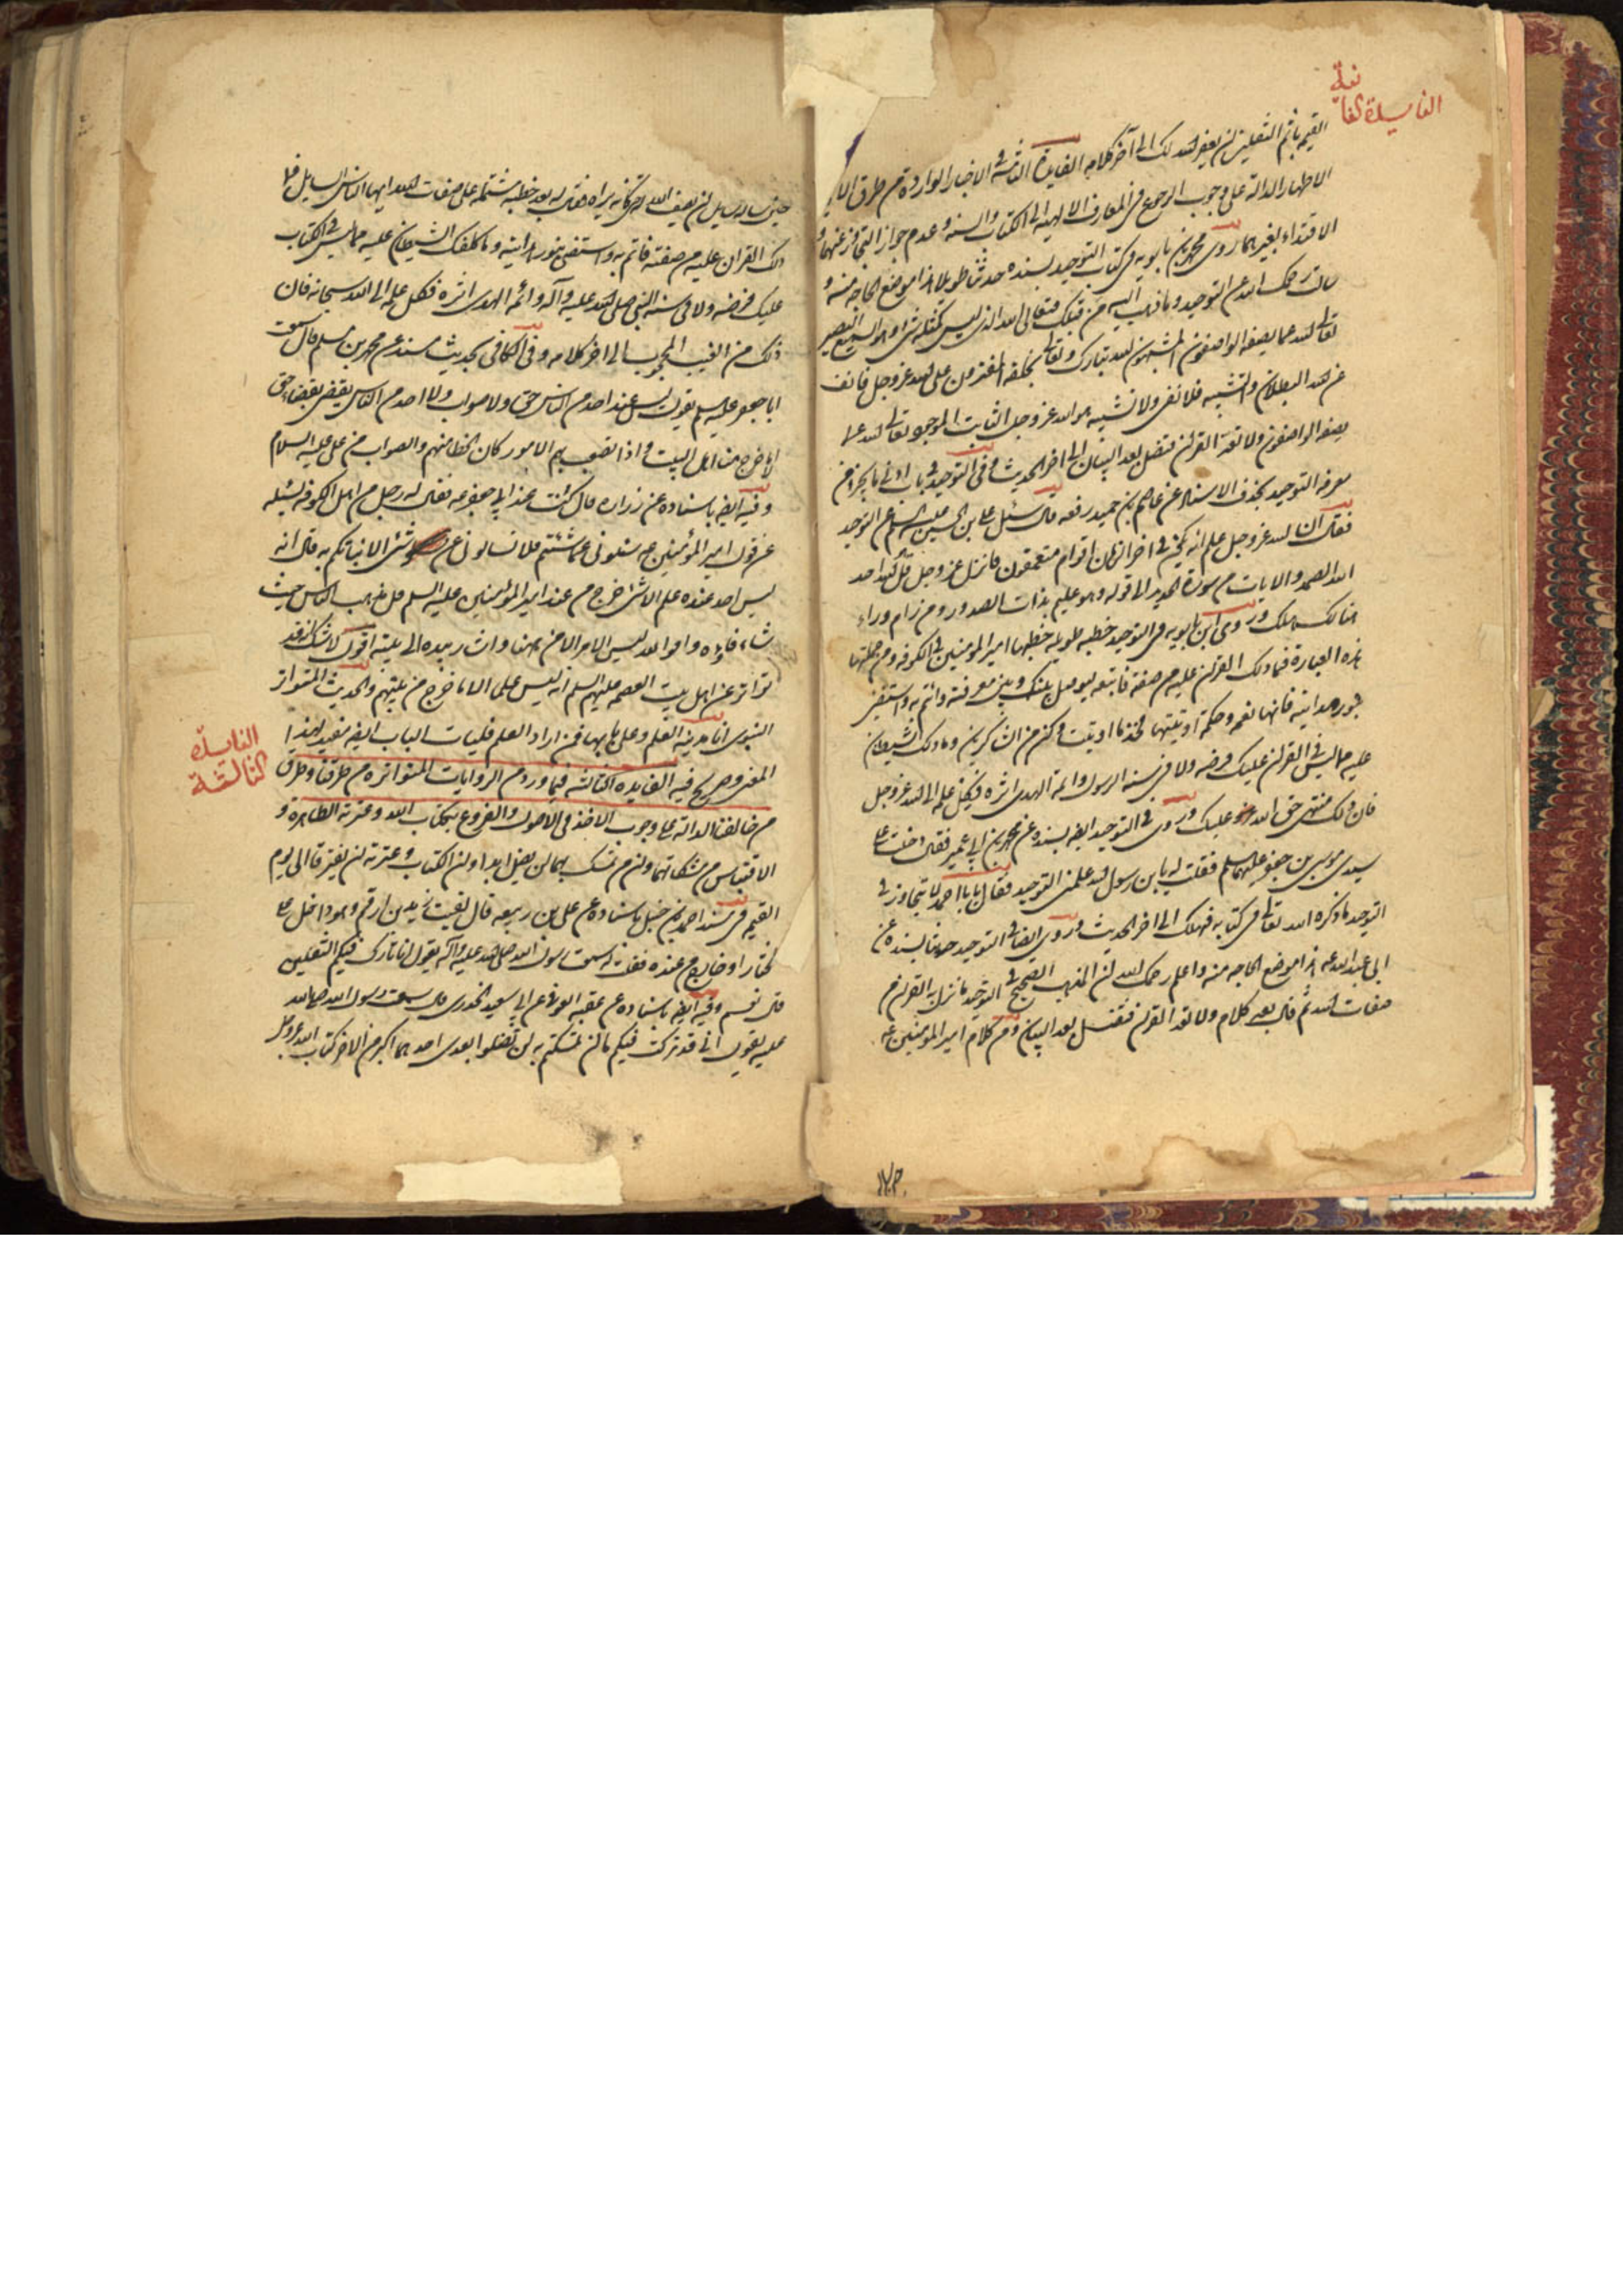 الفايدة الثانية
القيم باثم الثقلين لن يغفر الله لك الى آخر كلامه الفايدة الثانية في الاخبار الواردة من طرق الائمة
الاطهار الدالة على وجوب الرجوع في المعارف الالهية الى الكتاب والسنة وعدم جواز التجاوز عنهما و
الاقتداء بغيرهما روى محمد بن بابويه في كتاب التوحيد بسنده حديثا طويلا هذا موضع الحاجة منه و
سالت رحمك الله عن التوحيد وما ذهب اليه من قبلك فتعالى الله الذي ليس كمثله شئ وهو السميع البصير
تعالى الله عما يصفه الواصفون المشبهون الله تبارك وتعالى بخلقه المفترون على الله عز وجل فانف
عن الله البطلان والتشبيه فلا نفي ولا تشبيه هو الله عز وجل الثابت الموجود تعالى الله عما
يصفه الواصفون ولا تعد القرآن فتضل بعد البيان الى اخر الحديث وفي التوحيد في باب ادنى ما يجزي من
معرفة التوحيد بحذف الاسناد عن عاصم بن حميد رفعه قال سئل علي بن الحسين عليه السلم عن التوحيد
فقال ان الله عز وجل علم انه يكون في اخر الزمان اقوام متعمقون فانزل عز وجل قل هو الله احد
الله الصمد والايات من سورة الحديد الى قوله وهو عليم بذات الصدور ومن رام وراء
هنالك هلك وروى ابن بابويه في التوحيد خطبة طويلة خطبها امير المؤمنين في الكوفة ومن جملتها
هذه العبارة فما دلك القرآن عليه من صفة فاتبعه ليوصل بينك وبين معرفته وائتم به واستضئ
بنور هدايته فانها نعمة وحكمة اوتيتها فخذ ما اوتيت وكن من الشاكرين وما دلك الشيطان
عليه مما ليس في القرآن عليك فرضه ولا في سنة الرسول وائمة الهدى اثره فكل علمه الى الله عز وجل
فان ذلك منتهى حق الله عليك وروى في التوحيد ايضا بسنده عن محمد بن ابي عمير فقال دخلت على
سيدي موسى بن جعفر عليهما السلم فقلت له يا بن رسول الله علمني التوحيد فقال يا با احمد لا تتجاوز في
التوحيد ما ذكره الله تعالى في كتابه فتهلك الى اخر الحديث وروى ايضا في التوحيد حديثا بسنده عن
ابي عبد الله عه هذا موضع الحاجة منه واعلم رحمك الله ان المذهب الصحيح في التوحيد ما نزل به القرآن من
صفات الله ثم قال بعد كلام ولا تعد القرآن فتضل بعد البيان ومن كلام امير المؤمنين عه
حين ساله سايل ان يصف الله حتى كانه يراه فقال له بعد خطبة مشتملة على صفات الله ايها السايل فما
دلك القران عليه من صفته فائتم به واستضئ بنور هدايته وما كلفك الشيطان علمه مما ليس في الكتاب
عليك فرضه ولا في سنة النبي صلى الله عليه وآله وائمة الهدى اثره فكل علمه الى الله سبحانه فان
ذلك من الغيب المحجوب الى اخر كلامه وفي الكافي بحديث مسند عن محمد بن مسلم قال سمعت
ابا جعفر عليه السلم يقول ليس عند احد من الناس حق ولا صواب ولا احد من الناس يقضي بقضاء حق
الا ما خرج منا اهل البيت واذا تشعبت بهم الامور كان الخطا منهم والصواب من علي عليه السلام
وفيه ايضا باسناده عن زرارة قال كنت عند ابي جعفر عه فقال له رجل من اهل الكوفة يسئله
عن قول امير المؤمنين عه سلوني عما شئتم فلا تسالوني عن شئ الا انباتكم به قال انه
ليس احد عنده علم الا شئ خرج من عند امير المؤمنين عليه السلم فليذهب الناس حيث
شاءوا فوالله ليس الامر الا من ههنا واشار بيده الى بيته اقول لا شك انه قد
تواتر عن اهل بيت العصمة عليهم السلم انه ليس علم الا ما خرج من بيتهم والحديث المتواتر
النبوي انا مدينة العلم وعلي بابها فمن اراد العلم فليات الباب ايضا مفيد لهذا
المعنى وصريح فيه الفايدة الثالثة فيما ورد من الروايات المتواترة من طرقنا وطرق
الفايدة الثالثة
من خالفنا الدالة على وجوب الاخذ في الاصول والفروع بكتاب الله وعترته الطاهرة و
الاقتباس من مشكاتهما وان من تمسك بهما لن يضل ابدا وان الكتاب وعترته لن يفترقا الى يوم
القيم في مسند احمد بن حنبل باسناده عن علي بن ربيعه قال لقيت زيد بن ارقم وهو داخل على
المختار او خارج من عنده فقلت له سمعت رسول الله صلى الله عليه وآله يقول انا تارك فيكم الثقلين
قال نعم وفيه ايضا باسناده عن عطية العوفي عن ابي سعيد الخدري قال سمعت رسول الله صلى الله
عليه يقول اني قد تركت فيكم ما ان تمسكتم به لن تضلوا بعدي احدهما اكبر من الاخر كتاب الله عز وجل